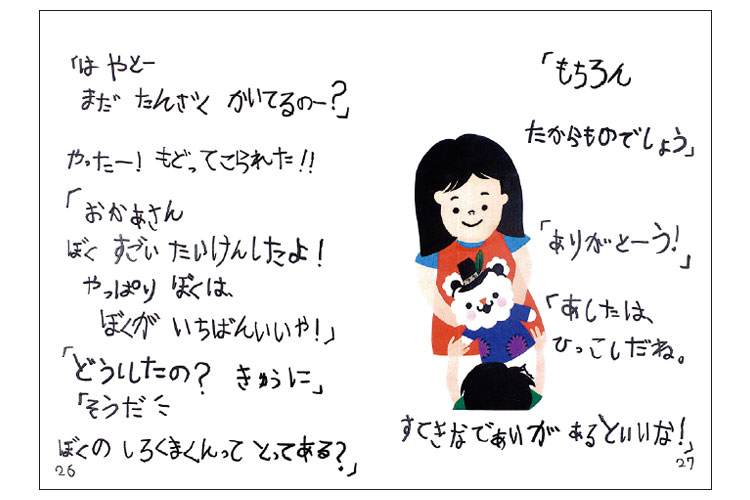 「はやとー
まだ たんざく かいてるのー?」
やったー! もどってこられた!!
「おかあさん
ぼく すごい たいけんしたよ!
やっぱり ぼくは、
ぼくが いちばんいいや!」
「どうしたの? きゅうに」
「そうだ
ぼくの しろくまくんって とってある?」
26
「もちろん
たからものでしょう」
「ありがとーう!」
「あしたは、
ひっこしだね。
すてきなであいが あるといいな!」
27